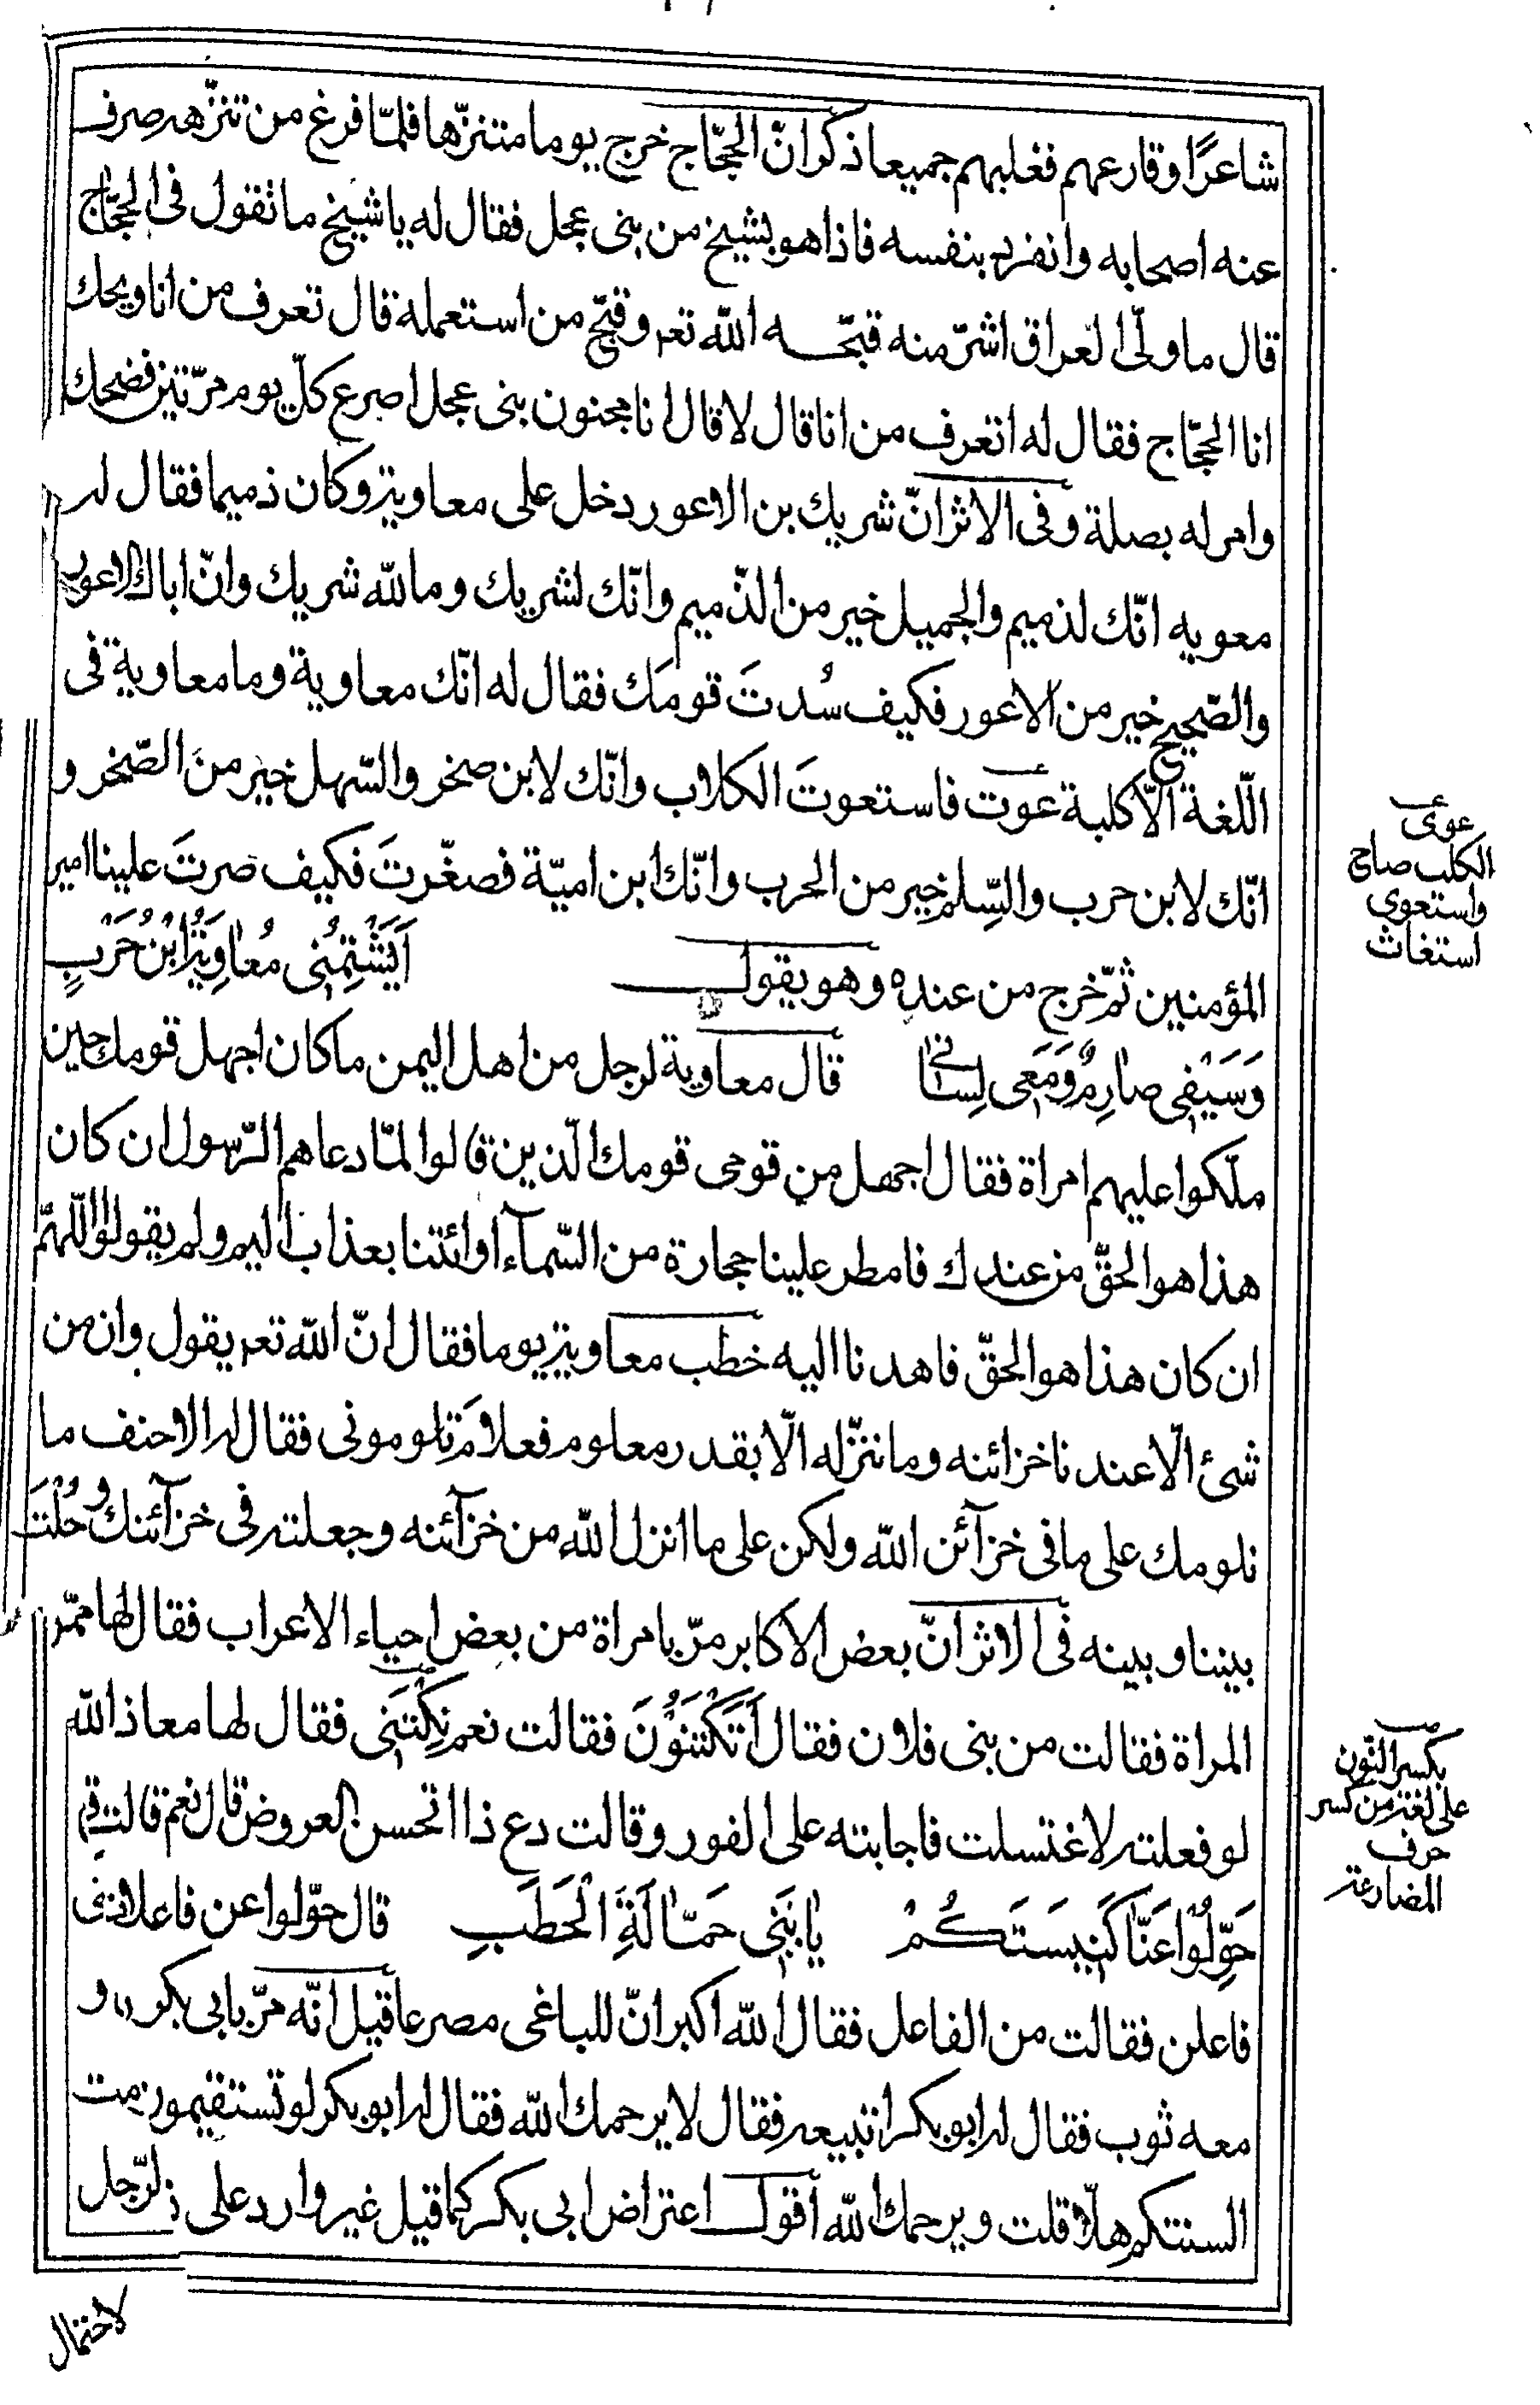 شاعرًا وقارعهم فغلبهم جميعا ذكر انّ الحجّاج خرج يوما متنزّها فلمّا فرغ من تنزّهه صرف
عنه اصحابه وانفرد بنفسه فاذا هو بشيخ من بنى عجل فقال له يا شيخ ما تقول فى الحجّاج
قال ما ولّى العراق اشرّ منه قبّحه الله تعه وقبّح من استعمله قال تعرف من انا ويحك
انا الحجّاج فقال له اتعرف من انا قال لا قال انا مجنون بنى عجل اصرع كلّ يوم مرّتين فضحك
وامر له بصلة وفى الاثر انّ شريك بن الاعور دخل على معاوية وكان ذميما فقال له
معويه انّك لذميم والجميل خير من الذّميم وانّك لشريك وما لله شريك وانّ اباك الاعور
والصّحيح خير من الاعور فكيف سُدتَ قومَك فقال له انّك معاوية وما معاوية فى
اللّغة الّا كلبة عوت فاستعوتَ الكلاب وانّك لابن صخر والسّهل خير منَ الصّخر و
انّك لابن حرب والسِّلم خير من الحرب وانّك ابن اميّة فصغّرتَ فكيف صرتَ علينا امير
المؤمنين ثمّ خرج من عنده وهو يقول اَيَشْتِمُنِى مُعاوِيَةُ ابْنُ حَرْبٍ
وَسَيْفِى صارِمٌ وَمَعِى لِسانى قال معاوية لرجل من اهل اليمن ما كان اجهل قومك حين
ملّكوا عليهم امراة فقال اجهل من قومى قومك الّذين قالوا لمّا دعاهم الرّسول ان كان
هذا هو الحقّ من عندك فامطر علينا حجارة من السّمآء او ائتنا بعذاب اليم ولم يقولوا اللّهمّ
ان كان هذا هو الحقّ فاهدنا اليه خطب معاوية يوما فقال انّ الله تعه يقول وان من
شئ الّا عندنا خزائنه وما ننزّله الّا بقدر معلوم فعلامَ تلومونى فقال له الاحنف ما
نلومك على ما فى خزآئن الله ولكن على ما انزل الله من خزآئنه وجعلته فى خزآئنك وحُلْتَ
بيننا وبينه فى الاثر انّ بعض الاكابر مرّ بامراة من بعض احياء الاعراب فقال لها ممّن
المراة فقالت من بنى فلان فقال اَتَكْتَنُوْنَ فقالت نعم نِكْتَنِى فقال لها معاذ الله
لو فعلته لاغتسلت فاجابته على الفور وقالت دع ذا اتحسن العروض قال نعم قالت
حَوِّلُوْا عَنّا كَنِيسَتَكُمْ يا بَنِى حَمّالَةَ الْحَطَبِ قال حوّلوا عن فاعلاتن
فاعلن فقالت من الفاعل فقال الله اكبر انّ للباغى مصرعا قيل انّه مرّ بابى بكر و
معه ثوب فقال له ابوبكر اتبيعه فقال لا يرحمك الله فقال له ابوبكر لو تستقيمون
السنتكم هلّا قلت ويرحمك الله اقول اعتراض ابى بكر كما قيل غير وارد على الرّجل
لاحتمال
عوى
الكلب صاح
واستعوى
استغاث
بكسر النّون
على لغة من كسر
حرف
المضارعة